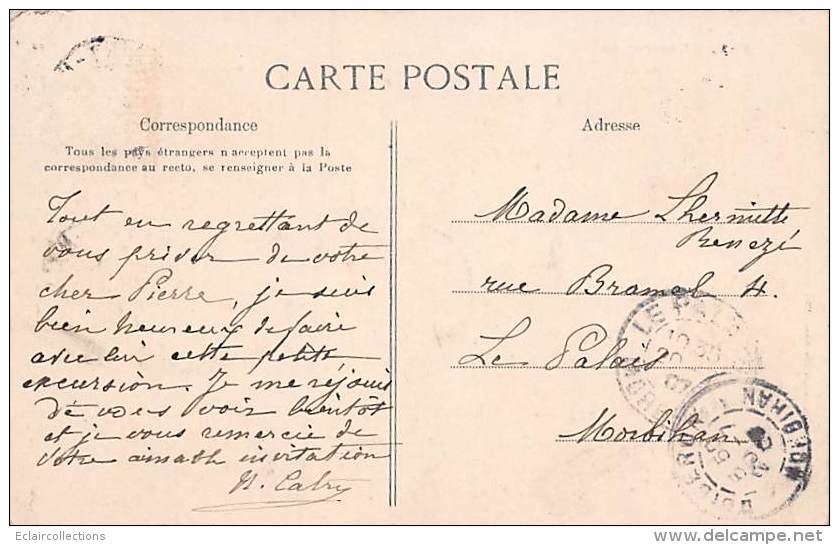 CARTE POSTALE
Correspondance
Tous les pays étrangers n'acceptent pas la
correspondance au recto, se renseigner à la Poste
Tout en regrettant de
vous priver de votre
cher Pierre, je suis
bien heureux de faire
avec lui cette petite
excursion. Je me réjouis
de vous voir bientôt
et je vous remercie de
votre aimable invitation
Adresse
Madame Lhermitte
Renezé
rue Bramel 4.
Le Palais
Morbihan
LE PALAIS
MORBIHAN
QUIBERON
Eclaircollections
www.delcampe.net